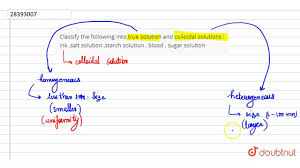 28393007
Classify the following into true solution and colloidal solutions :
Ink .salt solution .starch solution . blood . sugar solution
colloidal solution
homogeneous
less than 1nm size
(smaller)
(uniformity)
heterogeneous
size (1-100 nm)
(larger)
doubtnut